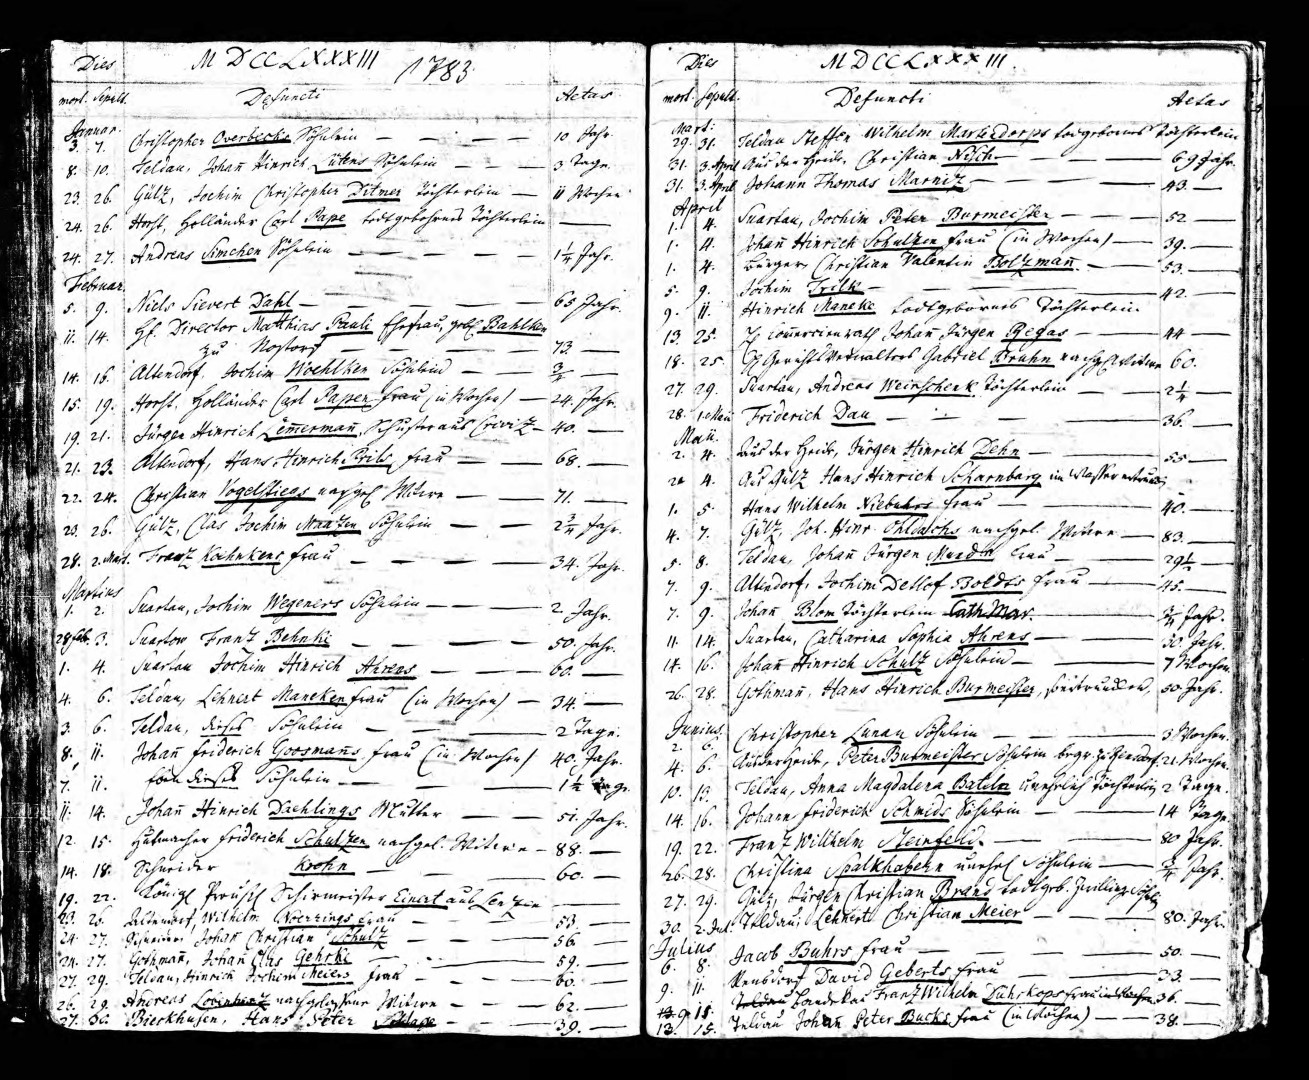 Dies MDCCLXXXIII 1783.
mort. Sepult. Defuncti Aetas
Januar.
3. 7. Christopher Overbecks Söhnlein — 10 Jahr.
8. 10. Teldau, Johañ Hinrich Lütens Söhnlein — 3 Tage.
23. 26. Gültz, Jochim Christopher Ditmer Töchterlein — 11 Wochen
24. 26. Horst, Holländer Carl Pape todtgebohrnes Töchterlein —
24. 27. Andreas Simchen Söhnlein — 1¼ Jahr.
Februar.
5. 9. Niels Sievert Dahl — 65 Jahr.
11. 14. H. Director Matthias Pauli Ehefrau, geb. Bahlken
zu Nostorf — 73. —
14. 16. Altendorf, Jochim Woehlken Söhnlein — ¾ —
15. 19. Horst, Holländer Carl Papen Frau (in Wochen) — 24. Jahr.
19. 21. Jürgen Hinrich Lem̃ermañ, Schuster aus Crivitz — 40. —
21. 23. Altendorf, Hans Hinrich Prils Frau — 68. —
22. 24. Christian Vogelstiegs nachgel. Witwe — 71. —
23. 26. Gültz, Clas Jochim Mantzen Söhnlein — 2¾ Jahr.
28. 2. Mart. Frantz Kähnkens Frau — 34. Jahr.
Martius
1. 2. Suartau, Jochim Wegeners Söhnlein — 2 Jahr.
28 Feb. 3. Suartow Frantz Behnki — 50. Jahr.
1. 4. Suartau Jochim Hinrich Ahrens — 60. —
4. 6. Teldau, Lehnert Maneken Frau (in Wochen) — 34. —
3. 6. Teldau, dieses Söhnlein — 2 Tage.
8. 11. Johañ Friderich Goosmañs Frau (in Wochen) 40. Jahr.
7. 11. dieses Söhnlein — 1½ Tage.
11. 14. Johañ Hinrich Daehlings Mutter — 51. Jahr.
12. 15. Hutmacher Friderich Schultzen nachgel. Witwe — 88. —
14. 18. Schneider Krohn — 60. —
19. 22. Königl. Preußl. Schirrmeister Einert aus Lentzin —
23. 26. Altendorf, Wilhelm Noerrings Frau — 53. —
24. 27. Johañ Christian Schultz — 56. —
24. 27. Gothmañ, Johañ Clas Gehrki — 59. —
27. 29. Teldau, Hinrich Jochim Meiers Frau — 60. —
26. 29. Andreas nachgelassene Witwe — 62. —
27. 30. Bierkhusen, Hans Peter Schlage — 39. —
Dies MDCCLXXXIII.
mort. Sepult. Defuncti Aetas
Mart:
29. 31. Teldau Steffen Wilhelm Martiedorps todtgebornes Töchterlein
31. 3. April Aus der Heide, Christian Nisch — 69 Jahr.
31. 3. April Johann Thomas Marnitz — 43. —
April
1. 4. Suartau, Jochim Peter Burmeister — 52. —
1. 4. Johañ Hinrich Schultzen Frau (in Wochen) — 39. —
1. 4. Bürger Christian Valentin Boltzmañ — 53. —
5. 9. Jochim Frilk — 42. —
9. 11. Hinrich Maneke todtgebornes Töchterlein
13. 25. H. Com̃ercienrath Johañ Jürgen Regas — 44 —
18. 25 H. Gerichtsverwalters Gabriel Bruhn nachgel. Witwe 60.
27. 29. Suartau, Andreas Weinschenk Töchterlein — 2¼
28. 1. Maii Friderich Dau — 36. —
Maii.
2. 4. Aus der Heide, Jürgen Hinrich Dehn — 55 —
2. 4. Aus Gultz Hans Hinrich Scharnberg im Wasser ertrunken
1. 5. Hans Wilhelm Niebuhrs Frau — 40. —
4. 7. Gültz, Joh. Hinr. Ohldachs nachgel. Witwe — 83. —
5. 8. Teldau, Johañ Jürgen Frau — 29½ —
7. 9. Altendorf, Jochim Detlof Boldts Frau — 45. —
7. 9. Johañ Blom Töchterlein Cath. Mar. ¾ Jahr.
11. 14. Suartau, Catharina Sophia Ahrens — 30 Jahr.
14. 16. Johañ Hinrich Schultz Söhnlein — 7 Wochen
26. 28. Gothmañ, Hans Hinrich Burmeister, 50. Jahr.
Junius.
2. 6. Christopher Lunau Söhnlein — 3 Wochen.
4. 6. Aus der Heide, Peter Burmeister Söhnlein 21. Wochen.
10. 13. Teldau, Anna Magdalena Bateln unehelich Töchterlein 2. Tage.
14. 16. Johann Friderich Schmids Söhnlein — 14 Tage.
19. 22. Frantz Willhelm Steinfeld. — 80 Jahr.
26. 28. Christina Spalkhabern unehel. Söhnlein — ¾ Jahr.
27. 29. Gültz, Jürgen Christian Brand todtgeb. Zwillings Söhnlein
30. 2. Jul. Teldau, Lehnert Christian Meier — 80. Jahr.
Julius
6. 8. Jacob Buhrs Frau — 50. —
9. 11. Rensdorf David Geberts Frau — 33. —
9 15. Frantz Wilhelm Dührkops Frau in Wochen 36. —
13. 15. Teldau Johañ Peter Bucks Frau (in Wochen) — 38. —